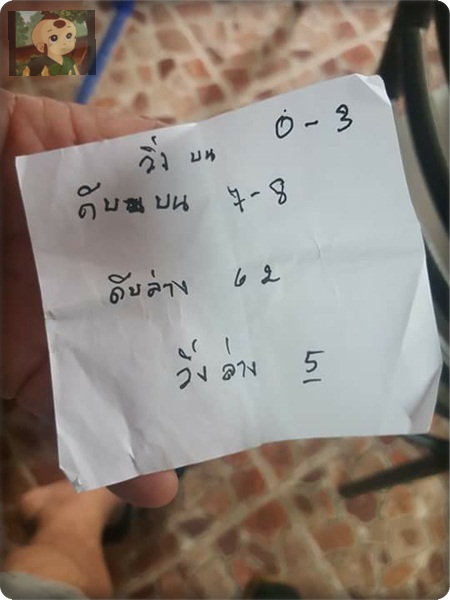 วิ่ง บน 0-3
ดับ บน 7-8
ดับล่าง 62
วิ่ง ล่าง 5